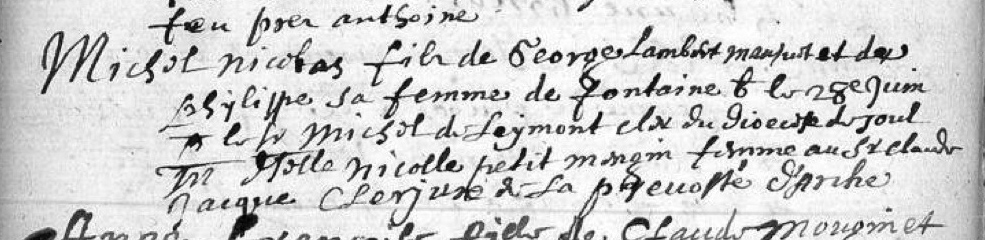 feu prer anthoine
Michel nicolas fils de George Lambert et de
phylippe sa femme de fontaine b le 28e Juin
p le sr Michel de Leymont cler du dioecese de toul
m dlle Nicolle petit mongin femme au Sr claude
Jacque Clerjuré de La prevosté d'arche
fille de Claude mougin et